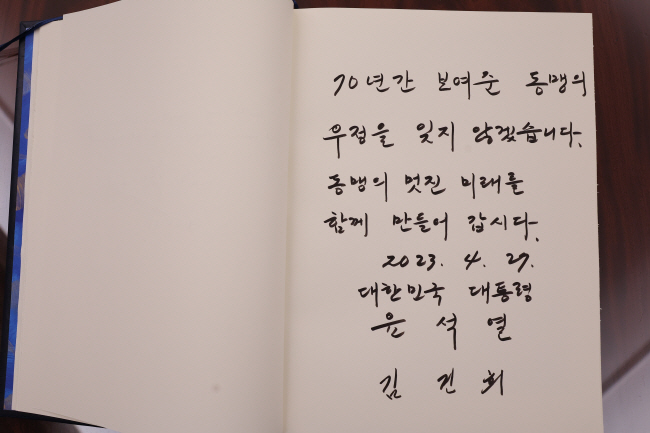 70년간 보여준 동맹의
우정을 잊지 않겠습니다.
동맹의 멋진 미래를
함께 만들어 갑시다.
2023. 4. 27.
대한민국 대통령
윤 석 열
김 건 희